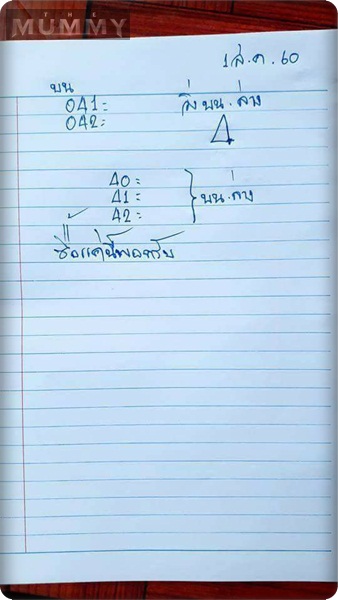 THE
MUMMY
1 ส.ค. 60
บน
041=
042=
วิ่ง บน. ล่าง
4
40=
41=
42=
บน. ล่าง
ซื้อแค่นี้พอครับ